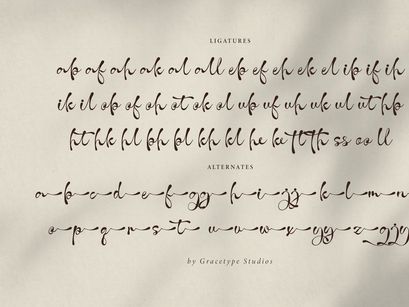 LIGATURES
ab af ah ak al all eb ef eh ek el ib if ih
ik il ob of oh ot ok ol ub uf uh uk ul ut hb
ht hk hl bh bl kh kl he ke tt th ss oo ll
ALTERNATES
a b c d e f g g h i j j k l m n
o p q r s t u v w x y y z
by Gracetype Studios